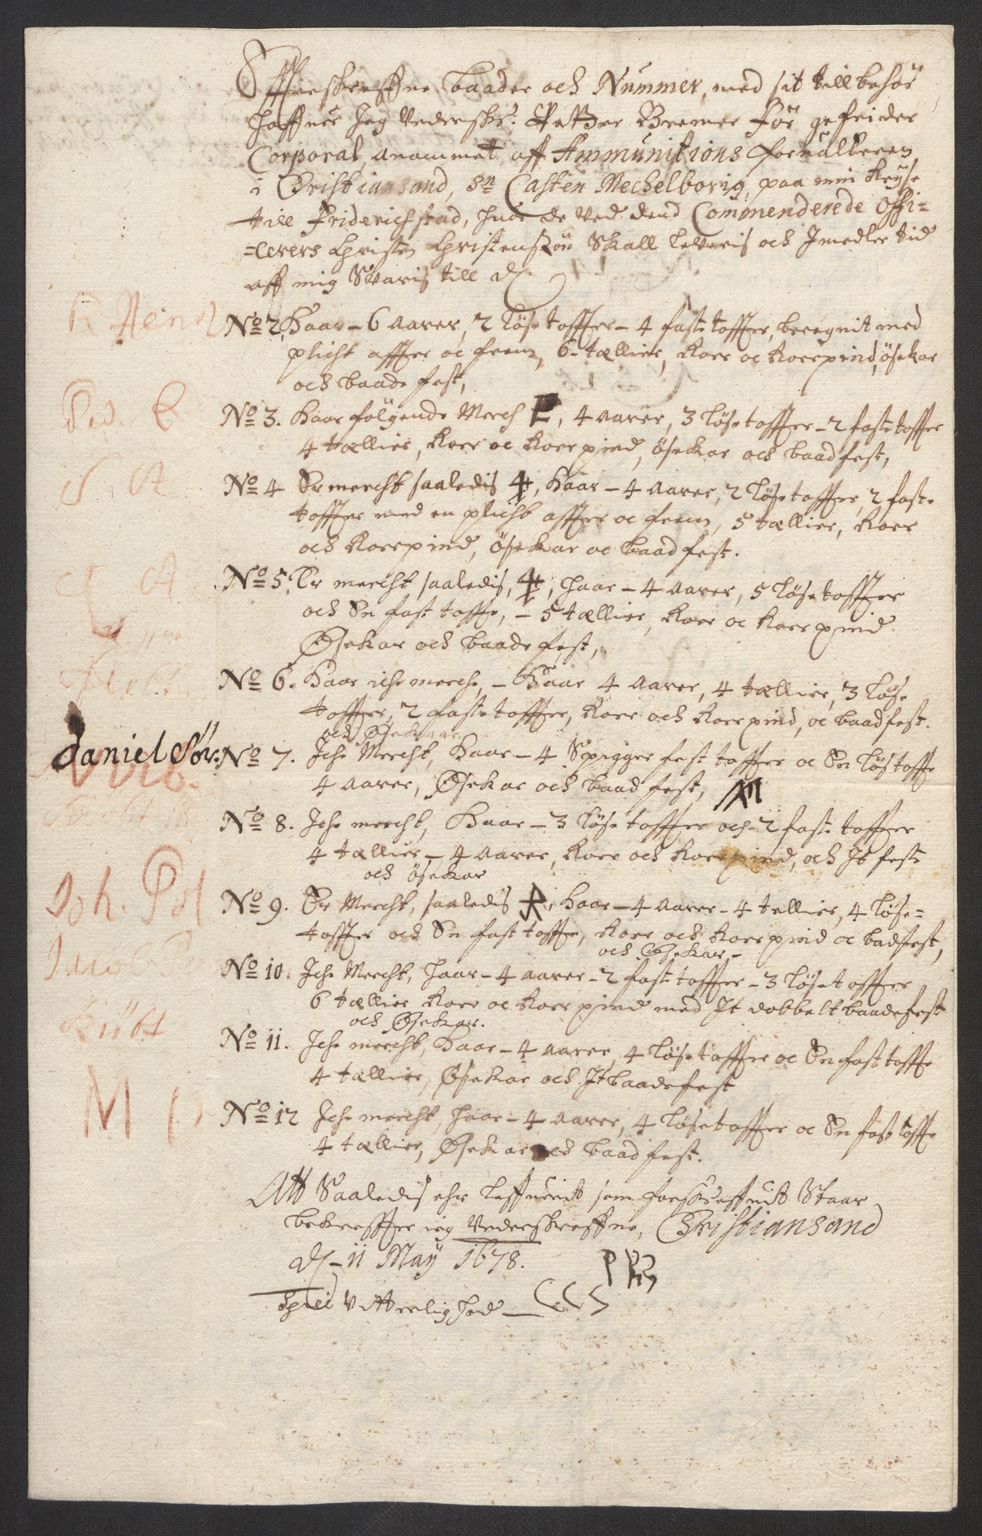 Effterskreffne Baader och Nummer, med sit tillbehør
haffuer Jeg Undersk: Petter Bremer for gefreider
Corporal anammet aff Ammunitions forvalteren
i Christiansand, Sr Casten Mechelborig, paa min Reyse
till Friderichstad, huor de ved dend Commenderede Offi=
=cerers Christen Christensøn Skall leveris och Jmedler tid
aff mig Svaris till
R Hend
No 2, Haar - 6 Aarer, 2 løse tofffter - 4 faste tofffter, beregnit med
plicht afffter oc frem, 6 tællier, Roer oc Roerpind, øsekar
och baade fest,
Ped. C
No 3. Haar følgende Merch E, 4 Aarer, 3 løse tofffter - 2 faste tofffter
4 tællier, Roer oc Roerpind, Øsekar och baadfest,
S. A
No 4 Er mercht saaledis 4, Haar - 4 Aarer, 2 løse tofffter, 2 faste
tofffter med en plicht afffter oc frem, 5 tællier, Roer
och Roerpind, Øsekar oc baadfest.
A
No 5, Er mercht saaledis, 4, haar - 4 Aarer, 5 løse tofffter
och En fast toffte, - 5 tællier, Roer oc Roerpind
Øsekar och baade fest,
No 6. Haar iche merche, - Haar 4 Aarer, 4 tællier, 3 løse
tofffter, 2 faste tofffter, Roer och Roerpind, oc baadfest.
och Øsekar
Daniel Sør.
No 7. Iche Mercht, Haar - 4 Spigger fest tofffter oc En løs toffte
4 Aarer, Øsekar och baadfest,
No 8. Iche mercht, Haar - 3 løse tofffter och 2 faste tofffter
4 tællier - 4 Aarer, Roer och Roerpind, och It fest
och øsekar
Joh. Pol
No 9. Er Mercht, saaledis R, Haar - 4 Aarer - 4 tellier, 4 løse=
tofffter och En fast toffte, Roer och Roerpind oc badfest,
och Øsekar -
Jacob
No 10. Iche Mercht, haar - 4 Aarer - 2 faste tofffter - 3 løse tofffter
6 tællier Roer oc Roerpind med It dobbelt baadefest
och Øsekar.
No 11. Iche mercht, Haar - 4 Aarer, 4 løse tofffter oc En fast toffte
4 tællier, Øsekar och It baadefest
M
No 12 Iche mercht, haar - 4 Aarer, 4 løse tofffter oc En fast toffte
4 tællier, Øsekar oc baadfest.
Att Saaledis ehr leffuerit som forskreffuit Staar
bekreffter ieg Underskreffne, Christiansand
d - 11 May 1678.
P B
til Vitterlighed